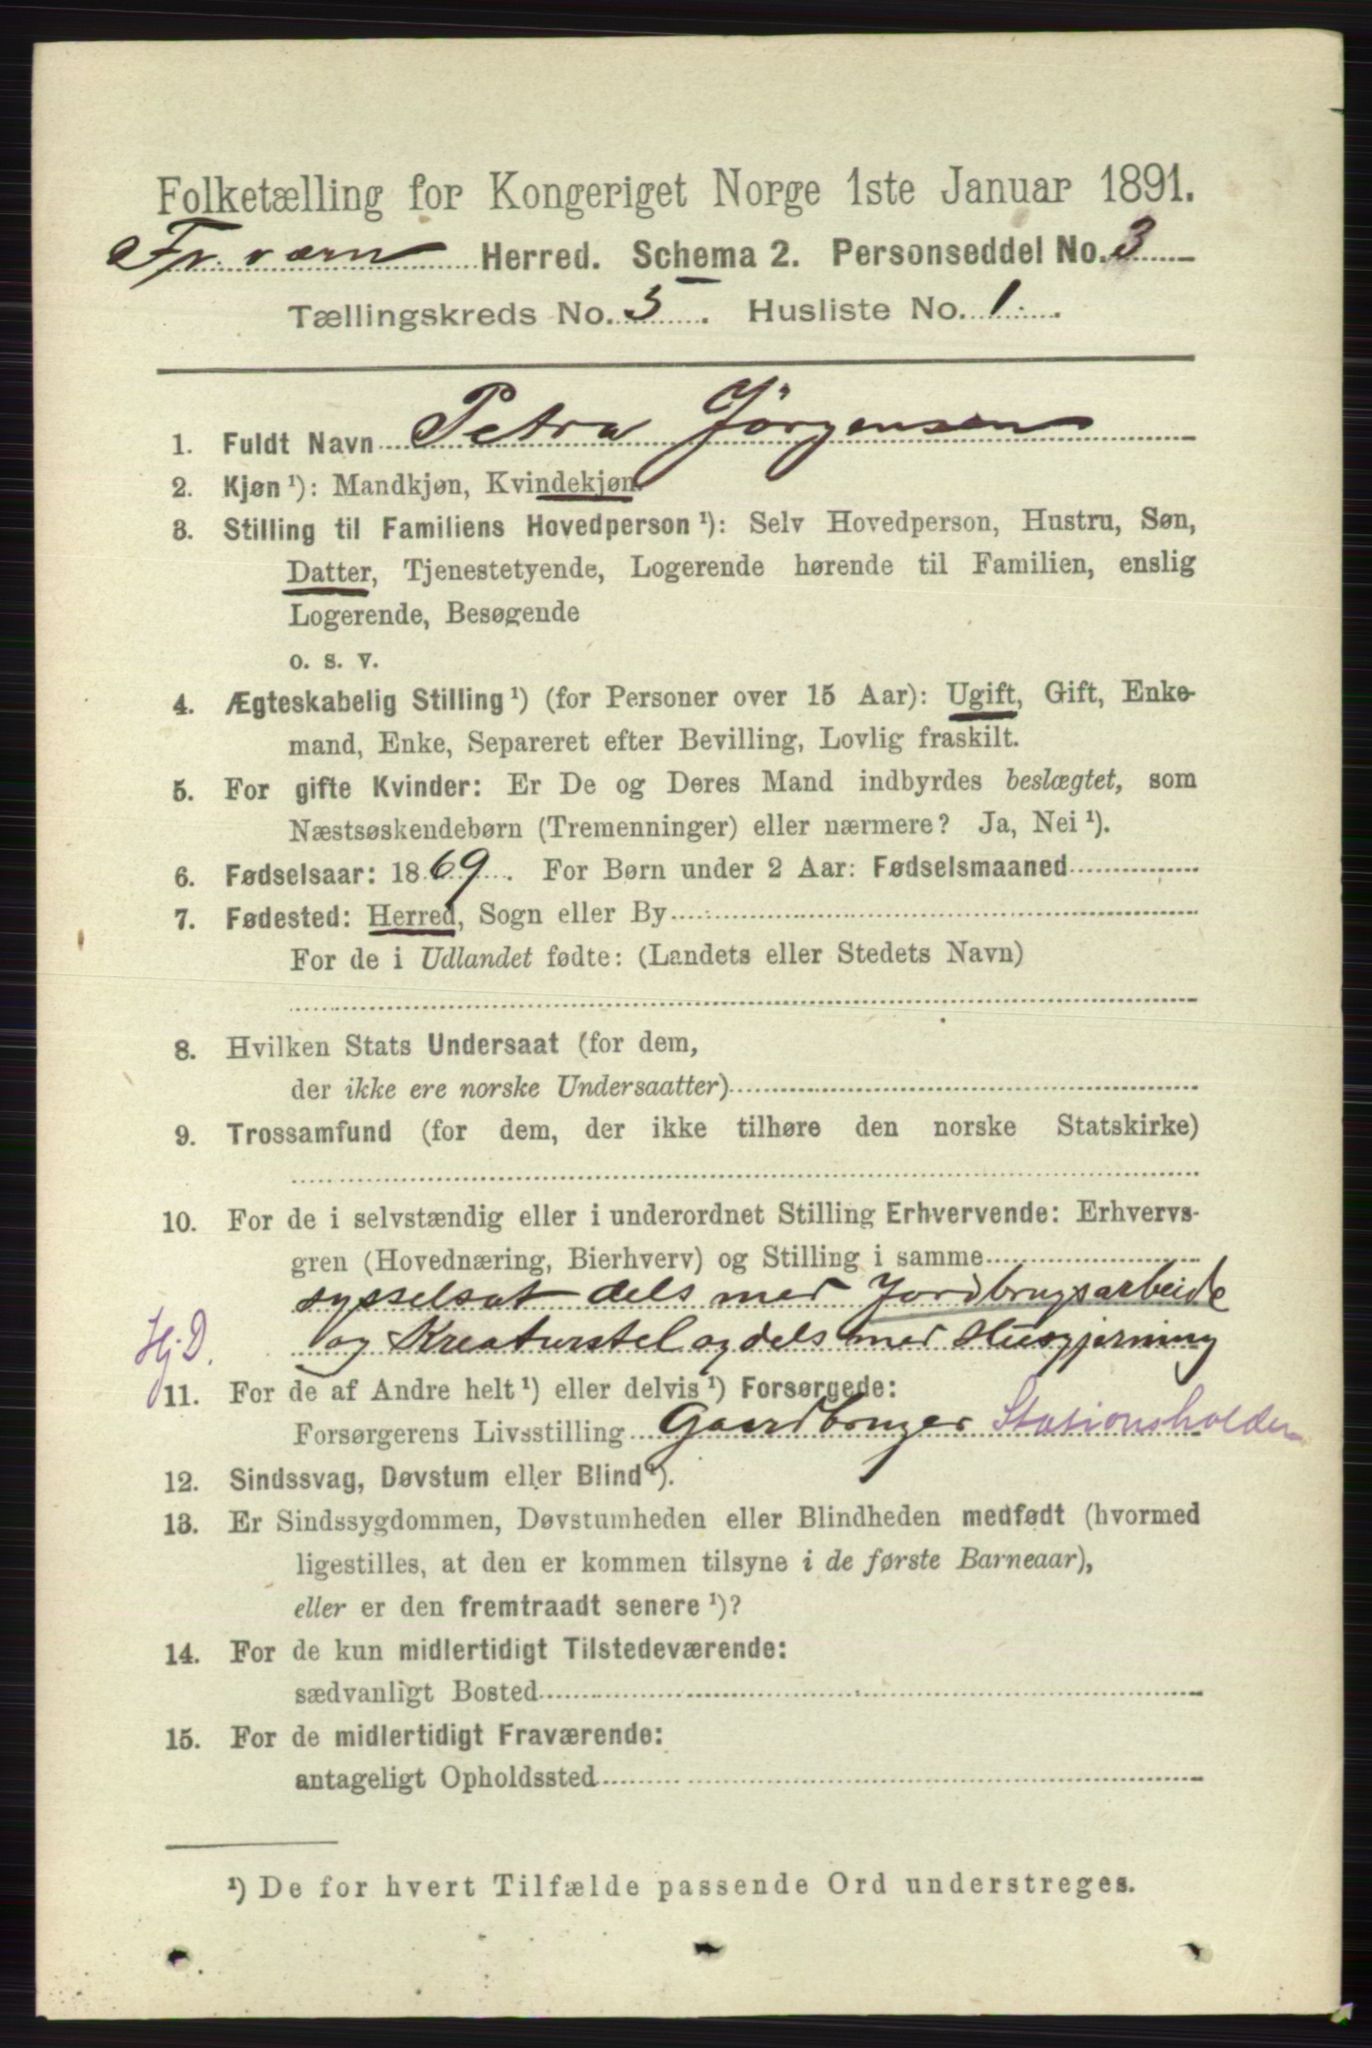 Folketælling for Kongeriget Norge 1ste Januar 1891.
Fr.værn Herred. Schema 2. Personseddel No. 3
Tællingskreds No. 5. Husliste No. 1.
1. Fuldt Navn Petra Jörgensen
2. Kjøn ¹): Mandkjøn, Kvindekjøn.
3. Stilling til Familiens Hovedperson ¹): Selv Hovedperson, Hustru, Søn,
Datter, Tjenestetyende, Logerende hørende til Familien, enslig
Logerende, Besøgende
o. s. v.
4. Ægteskabelig Stilling ¹) (for Personer over 15 Aar): Ugift, Gift, Enke-
mand, Enke, Separeret efter Bevilling, Lovlig fraskilt.
5. For gifte Kvinder: Er De og Deres Mand indbyrdes beslægtet, som
Næstsøskendebørn (Tremenninger) eller nærmere? Ja, Nei ¹).
6. Fødselsaar: 1869. For Børn under 2 Aar: Fødselsmaaned
7. Fødested: Herred, Sogn eller By
For de i Udlandet fødte: (Landets eller Stedets Navn)
8. Hvilken Stats Undersaat (for dem,
der ikke ere norske Undersaatter)
9. Trossamfund (for dem, der ikke tilhøre den norske Statskirke)
10. For de i selvstændig eller i underordnet Stilling Erhvervende: Erhvervs-
gren (Hovednæring, Bierhverv) og Stilling i samme
sysselsat dels med Jordbrugsarbeide
Hj.D. og Kreaturstel og dels med Husgjerning
11. For de af Andre helt ¹) eller delvis ¹) Forsørgede:
Forsørgerens Livsstilling Gaardbruger Stationsholder
12. Sindssvag, Døvstum eller Blind ¹).
13. Er Sindssygdommen, Døvstumheden eller Blindheden medfødt (hvormed
ligestilles, at den er kommen tilsyne i de første Barneaar),
eller er den fremtraadt senere ¹)?
14. For de kun midlertidigt Tilstedeværende:
sædvanligt Bosted
15. For de midlertidigt Fraværende:
antageligt Opholdssted
¹) De for hvert Tilfælde passende Ord understreges.